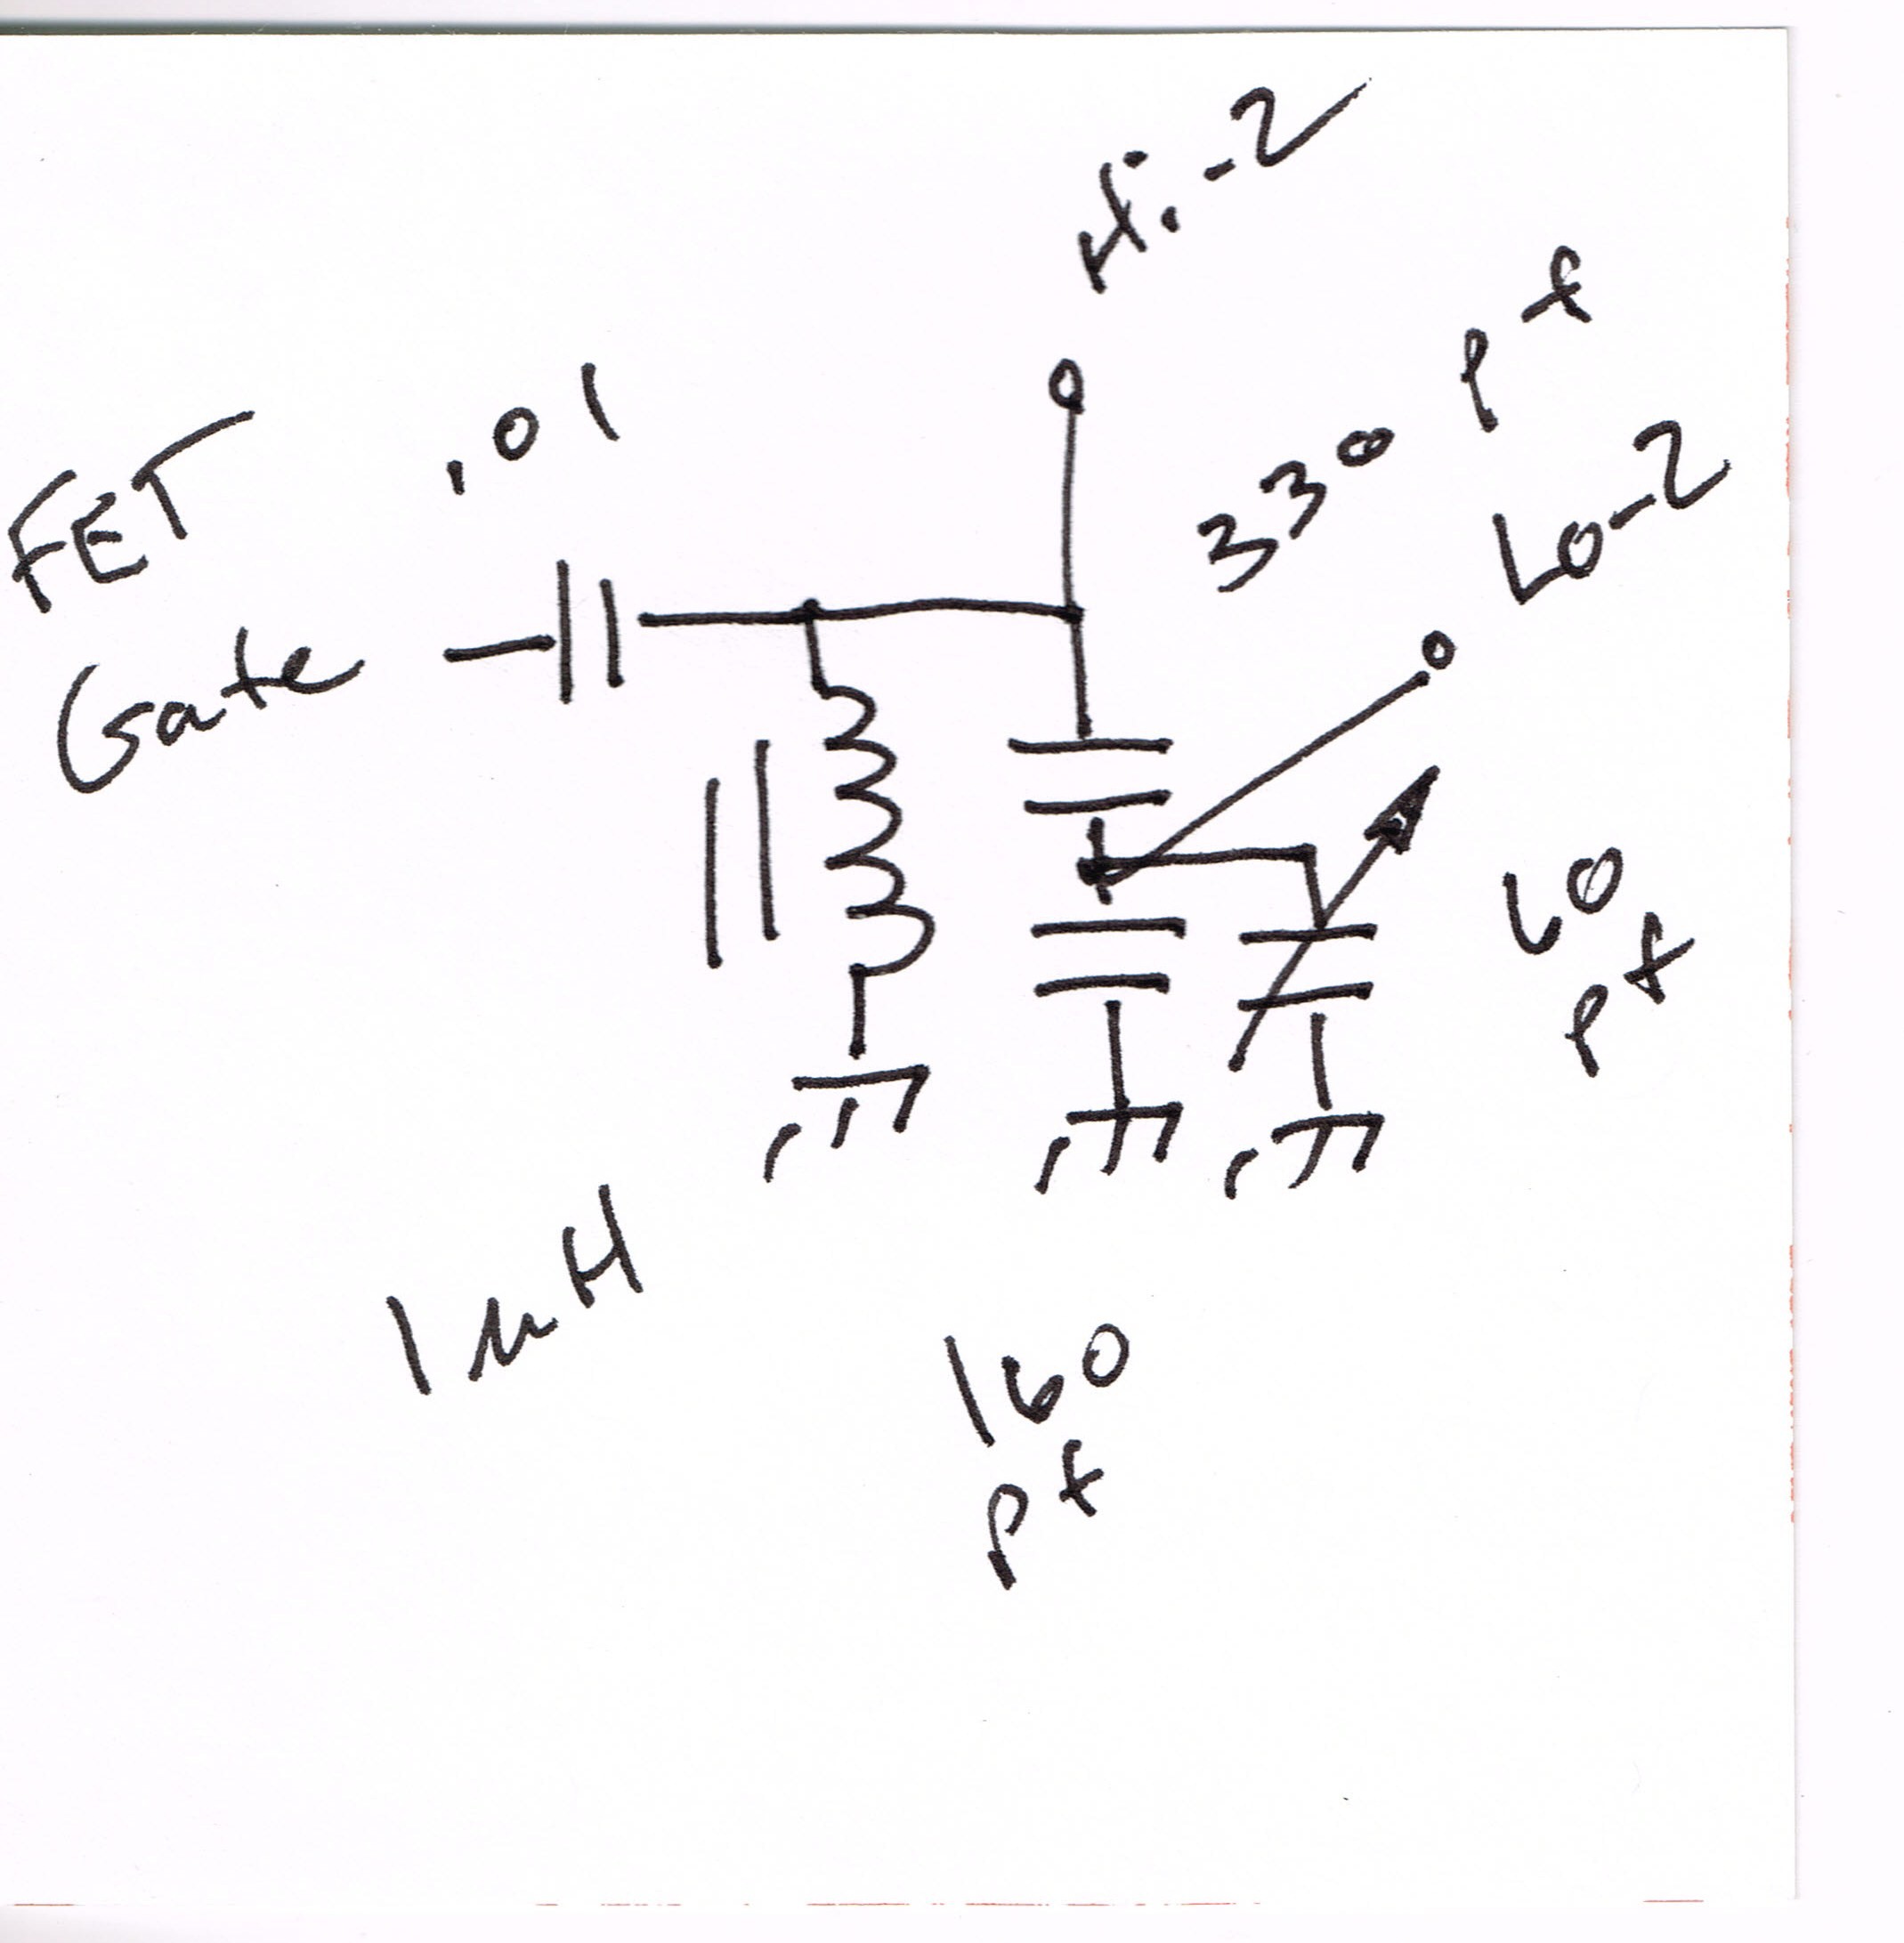 Hi-Z
330 pf
Lo-Z
.01
FET
Gate
60
pf
1 µH
160
pf